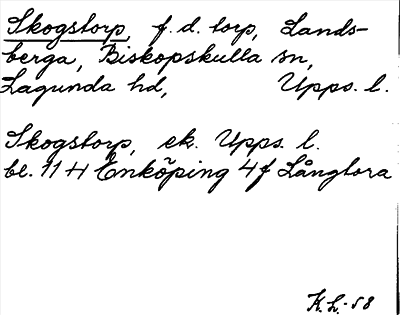 Skogstorp, f. d. torp, Lands-
berga, Biskopskulla sn,
Lagunda hd, Upps. l.
Skogstorp, ek. Upps. l.
bl. 11 H Enköping 4 f Långtora
K. L. -58